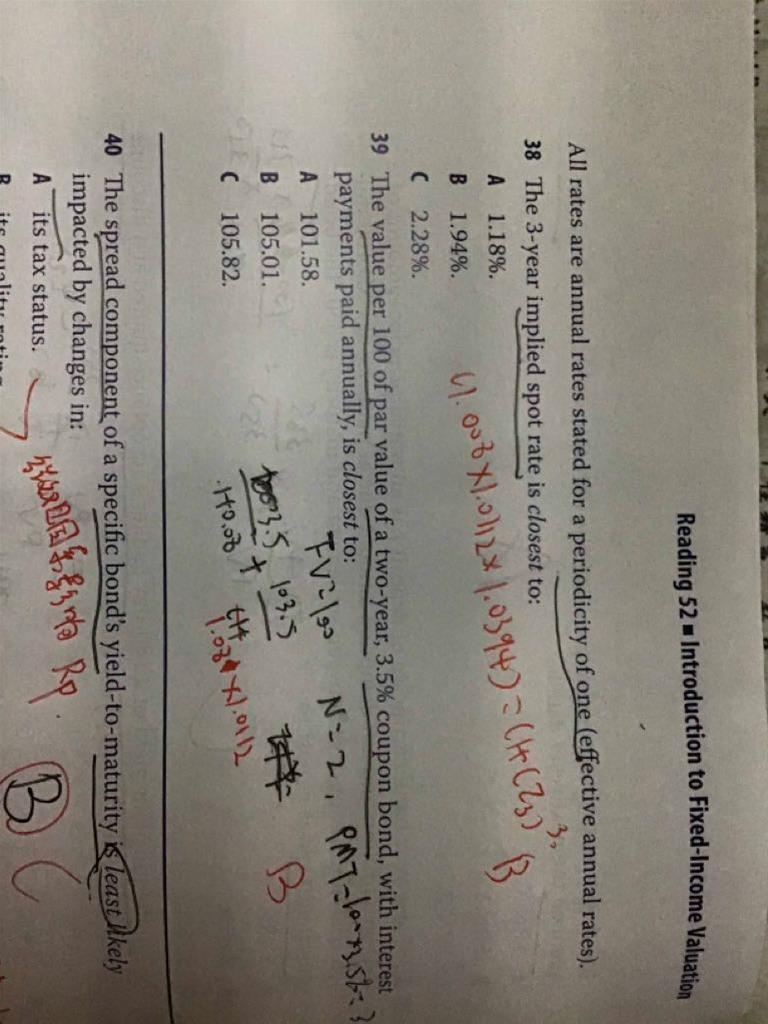 Reading 52 ■ Introduction to Fixed-Income Valuation
All rates are annual rates stated for a periodicity of one (effective annual rates).
38 The 3-year implied spot rate is closest to:
A 1.18%.
B 1.94%.
C 2.28%.
(1.008×1.0112×1.0394)=(1+(Z3)³. B
39 The value per 100 of par value of a two-year, 3.5% coupon bond, with interest
payments paid annually, is closest to:
A 101.58.
B 105.01.
C 105.82.
FV=100 N=2, PMT=100×3.5%=3
3.5 + 103.5
B
40 The spread component of a specific bond's yield-to-maturity is least likely
impacted by changes in:
A its tax status.
Rp.
B C
B its quality rating